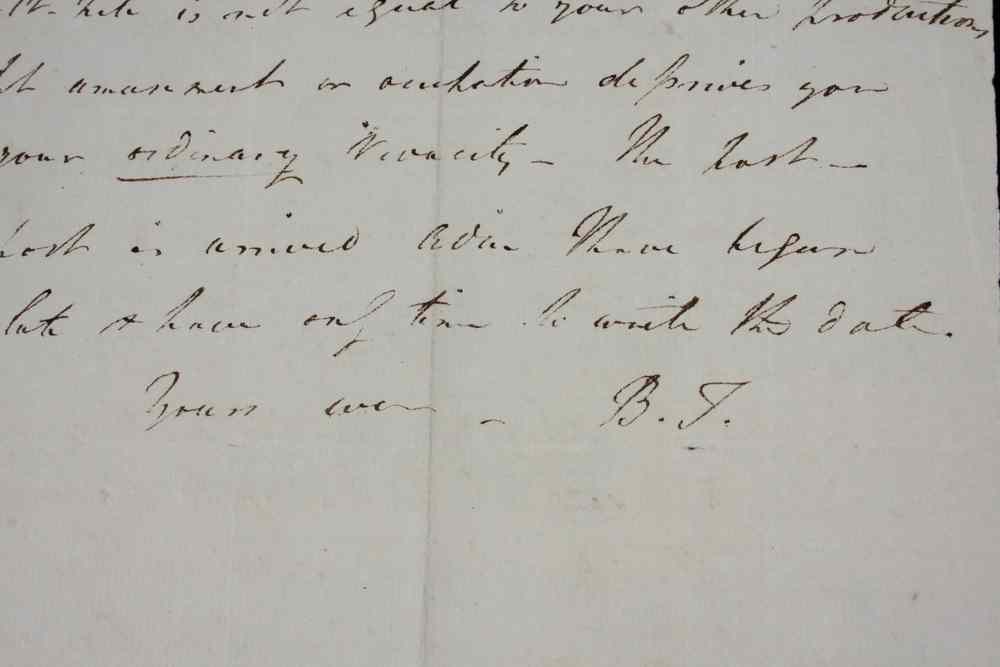 is not equal to your other productions
amusement or occupation deprives you
your ordinary vivacity – The post –
post is arrived adieu I have begun
late & have only time to write this date.
Yours ever – B. T.